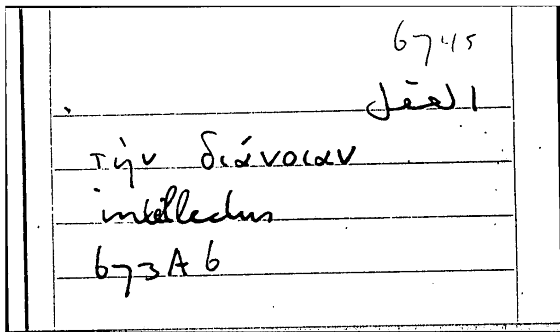 6745
τὴν διάνοιαν
intellectus
673A6